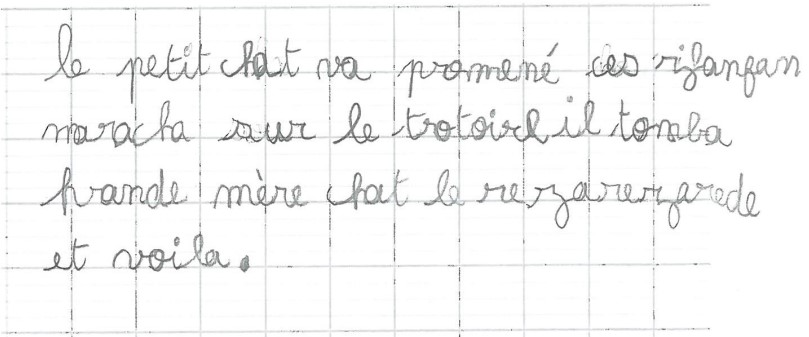 le petit chat va promené ces rifanfan
maracha sur le trotoire il tomba
frande mère chat le rezarezarede
et voila.